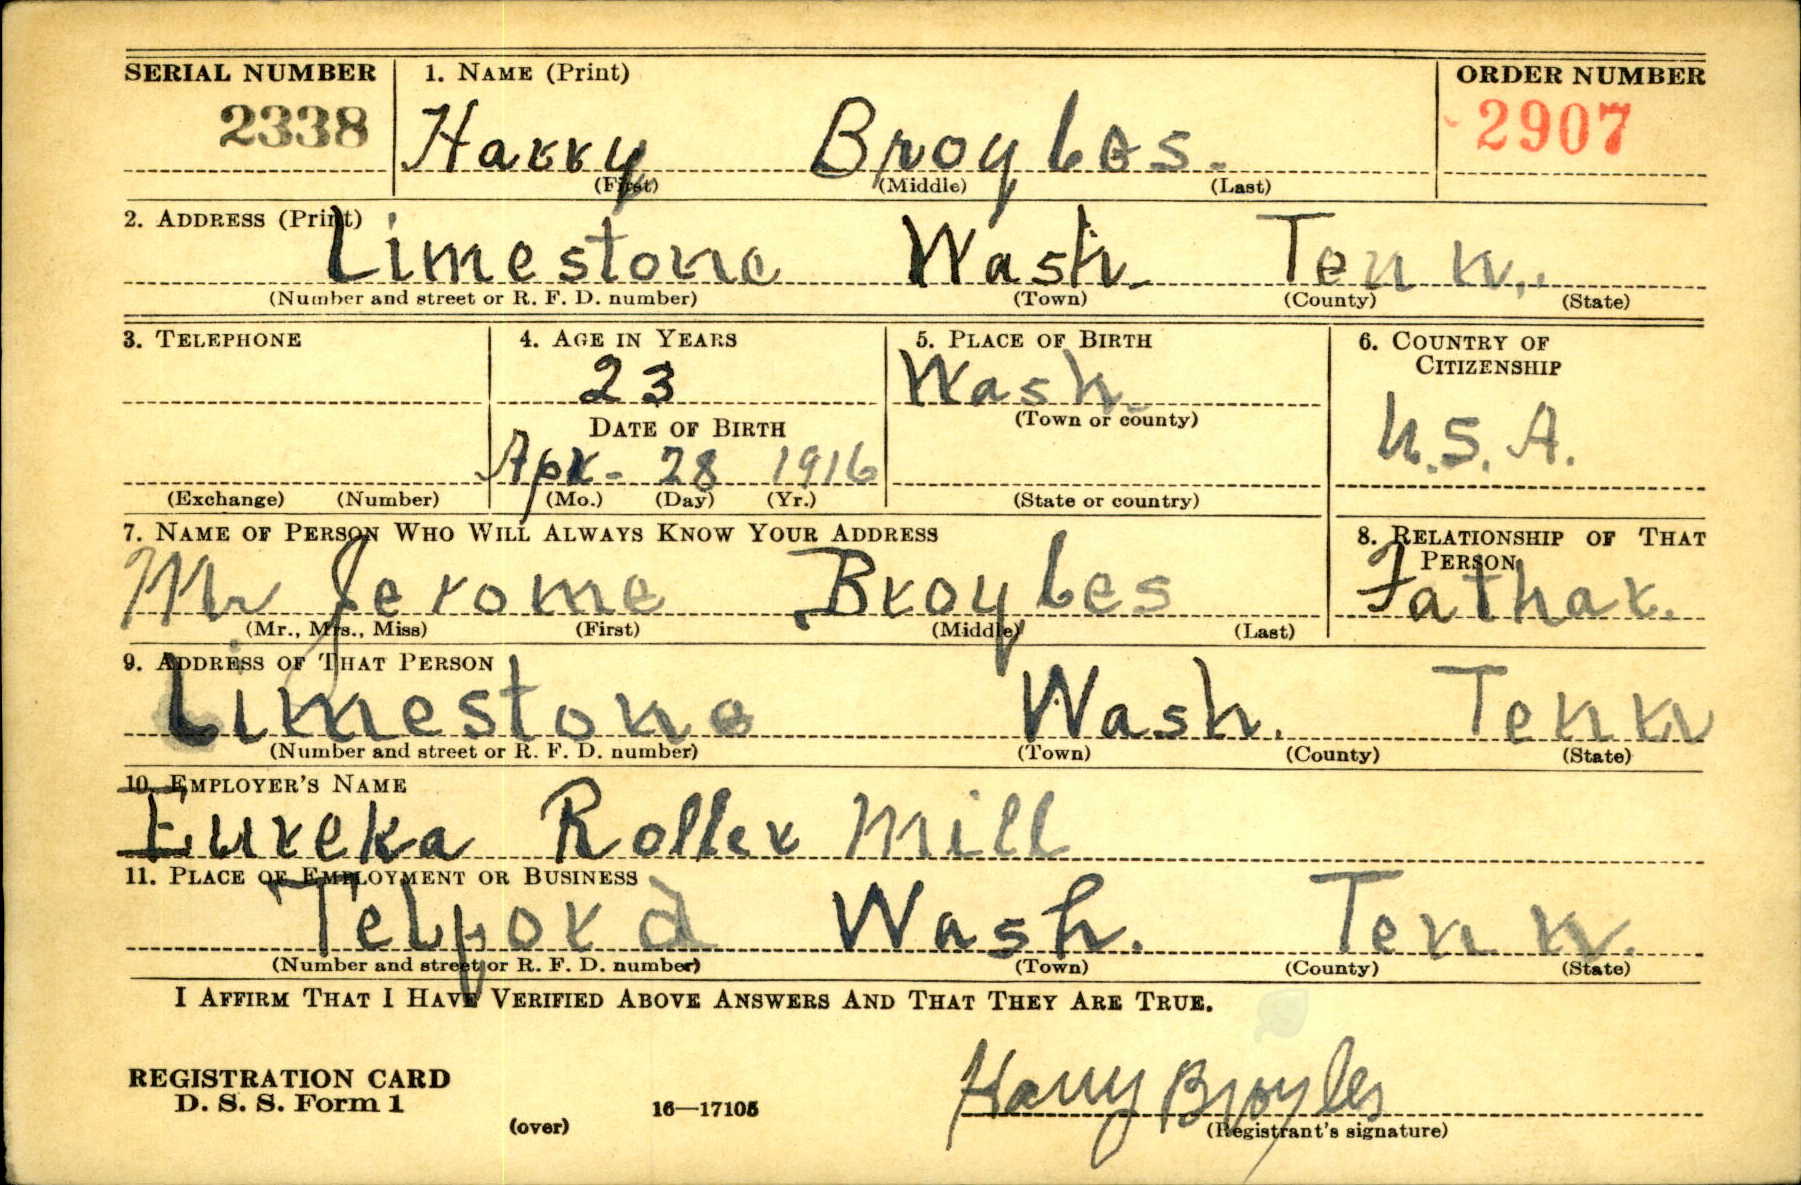 SERIAL NUMBER 1. NAME (Print) ORDER NUMBER
2338 Harry Broyles. 2907
(First) (Middle) (Last)
2. ADDRESS (Print)
Limestone Wash. Tenn.
(Number and street or R. F. D. number) (Town) (County) (State)
3. TELEPHONE 4. AGE IN YEARS 5. PLACE OF BIRTH 6. COUNTRY OF
CITIZENSHIP
23 Wash.
(Town or county)
DATE OF BIRTH U.S.A.
Apr. 28 1916
(Exchange) (Number) (Mo.) (Day) (Yr.) (State or country)
7. NAME OF PERSON WHO WILL ALWAYS KNOW YOUR ADDRESS 8. RELATIONSHIP OF THAT
PERSON
Mr Jerome Broyles Fathar.
(Mr., Mrs., Miss) (First) (Middle) (Last)
9. ADDRESS OF THAT PERSON
Limestone Wash. Tenn
(Number and street or R. F. D. number) (Town) (County) (State)
10. EMPLOYER'S NAME
Eureka Roller Mill
11. PLACE OF EMPLOYMENT OR BUSINESS
Telford Wash. Tenn.
(Number and street or R. F. D. number) (Town) (County) (State)
I AFFIRM THAT I HAVE VERIFIED ABOVE ANSWERS AND THAT THEY ARE TRUE.
REGISTRATION CARD Harry Broyles
D. S. S. Form 1
(over) 16—17105 (Registrant's signature)